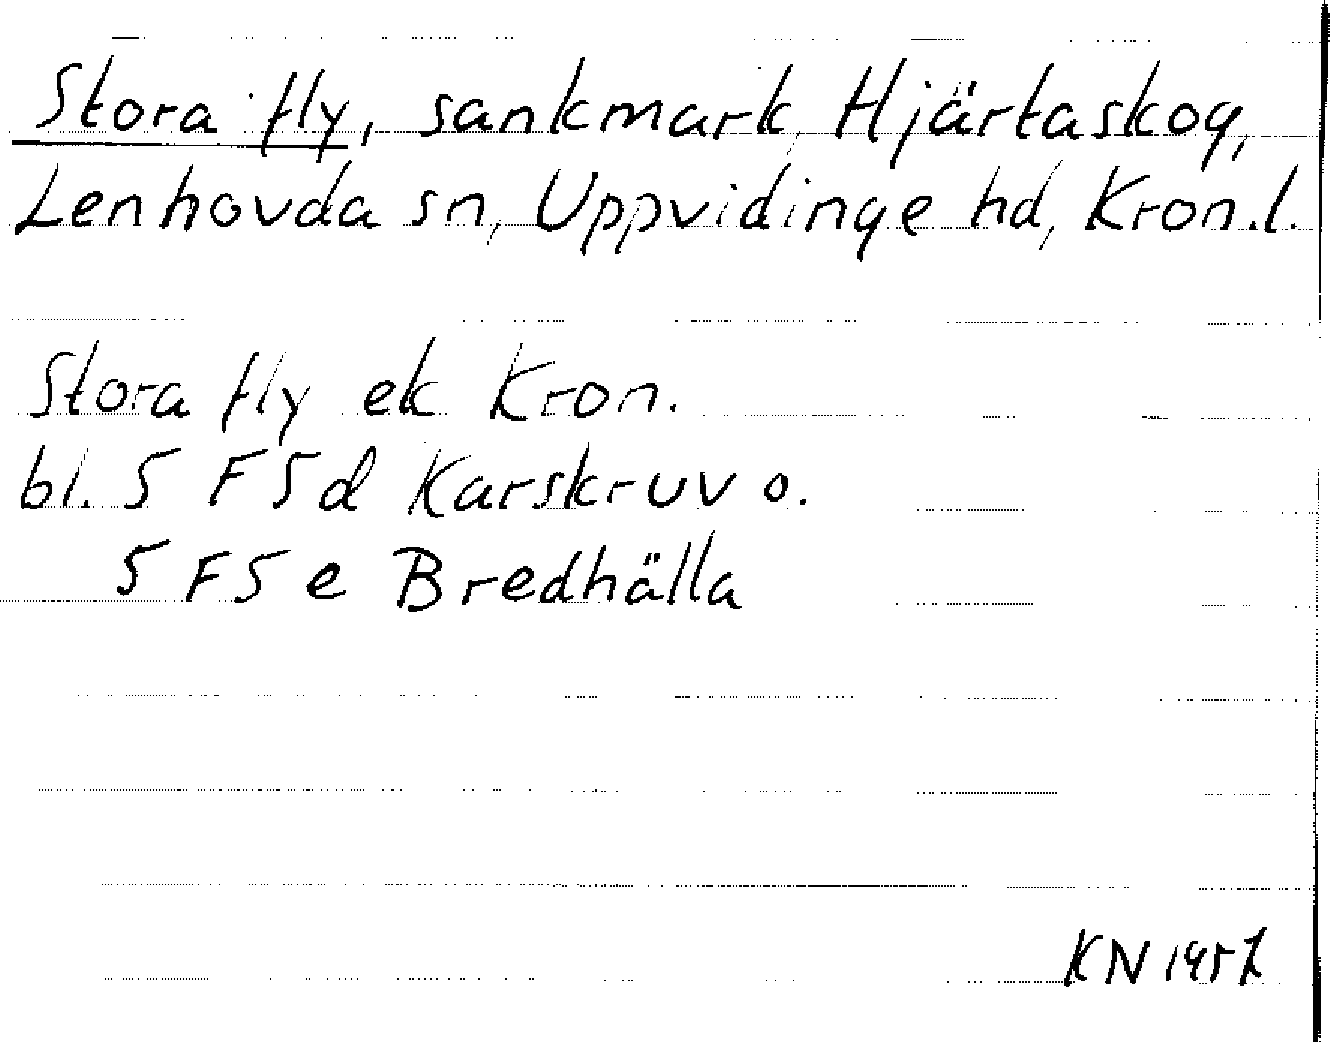 Stora fly, sankmark, Hjärtaskog,
Lenhovda sn, Uppvidinge hd, Kron.l.
Stora fly ek Kron.
bl. 5 F 5 d Karskruv o.
5 F 5 e Bredhälla
KN 1957